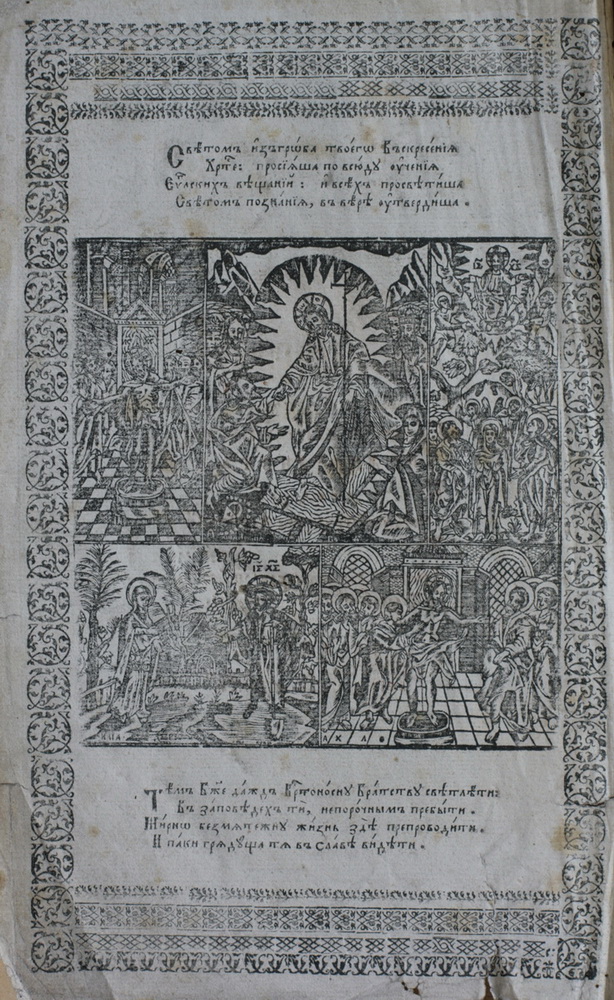 Свѣтомъ и҆зъ гро́ба твоегѡ̀ Въскресе́нїѧ
Хрⷭ҇те: просїѧ́ша по всю́дꙋ ᲂу҆че́нїѧ
Еѵⷢ҇лскихъ вѣща́нїй: и҆ всѣ́хъ просвѣти́ша
Свѣ́томъ позна́нїѧ, въ вѣ́рѣ ᲂу҆твердиша.
ІС ХС
Тѣ́мъ Бж҃е да́ждъ Крⷭ҇тоно́снꙋ Бра́тствꙋ свѣтлѣ́ти:
Въ за́повѣдехъ ти̑, непоро́чнымъ пребы́ти.
Ми́рнꙋ безмѧте́жнꙋ жи́знь здѣ̀ препроводи́ти.
И҆ паки грѧдꙋ́ща тѧ въ сла́вѣ ви́дѣти.